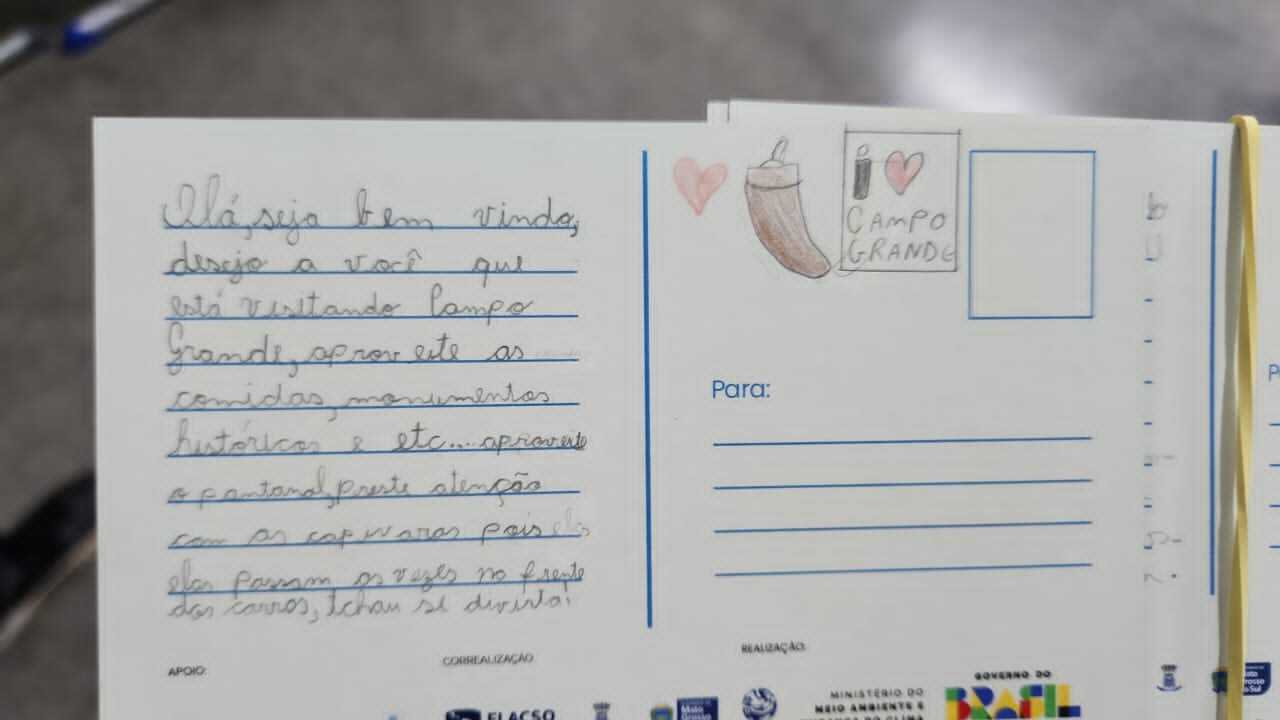 Olá, seja bem vindo,
desejo a você que
está visitando Campo
Grande, aproveite as
comidas, monumentos
históricos e etc... aproveite
o pantanal, preste atenção
com as capivaras pois elas
elas passam as vezes na frente
dos carros, tchau se divirta!
i
CAMPO
GRANDE
Para:
APOIO:
CORREALIZAÇÃO
REALIZAÇÃO:
FLACSO
MINISTÉRIO DO
MEIO AMBIENTE E
MUDANÇA DO CLIMA
GOVERNO DO
BRASIL